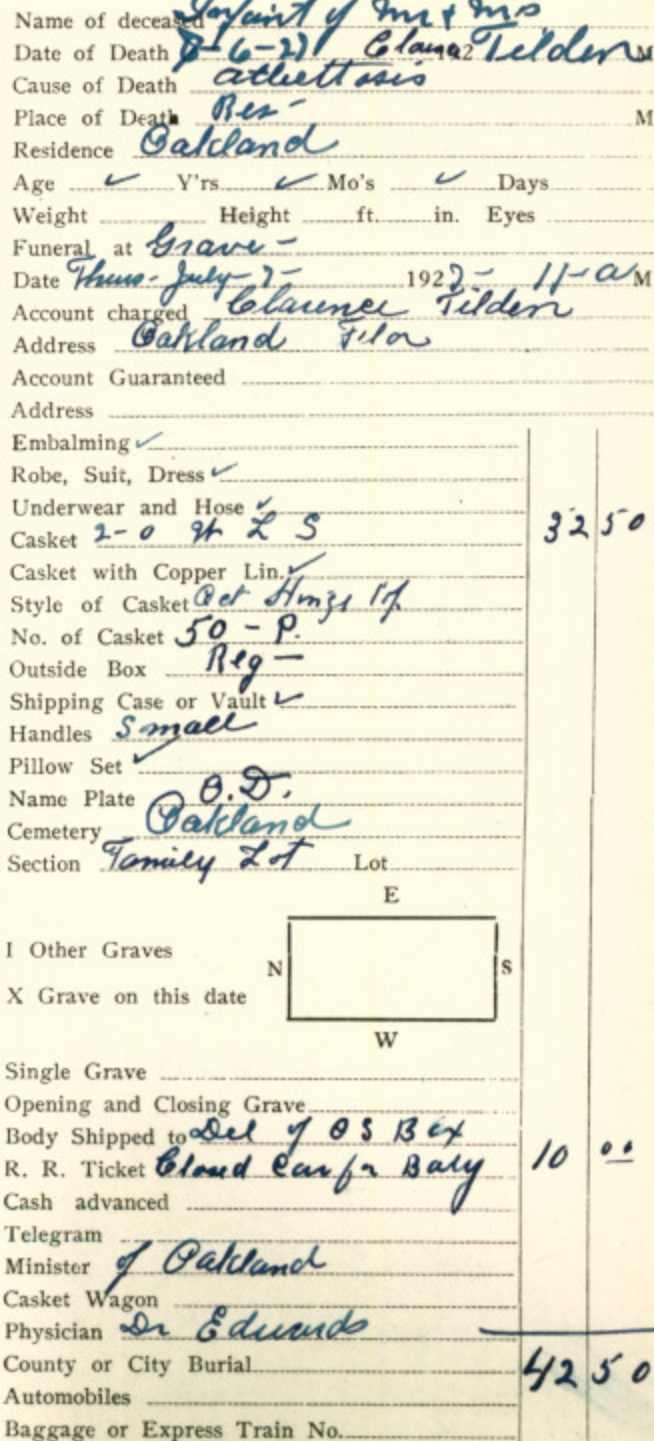 Name of deceased Infant of Mr + Mrs
Date of Death 7-6-27 192 Tilden M
Cause of Death
Place of Death Res - M
Residence Oakland
Age ✓ Y'rs ✓ Mo's ✓ Days
Weight Height ft. in. Eyes
Funeral at Grave -
Date Thurs - July - 7 - 1927 - 11-a M
Account charged Clarence Tilden
Address Oakland Flor
Account Guaranteed
Address
Embalming ✓
Robe, Suit, Dress ✓
Underwear and Hose ✓
Casket 2-0 L S 32 50
Casket with Copper Lin. ✓
Style of Casket Oct
No. of Casket 50 - P.
Outside Box Reg -
Shipping Case or Vault ✓
Handles Small
Pillow Set ✓
Name Plate O.D.
Cemetery Oakland
Section Family Lot Lot
E
I Other Graves
N S
X Grave on this date
W
Single Grave
Opening and Closing Grave
Body Shipped to Del of O S Box
R. R. Ticket Closed Car for Baby 10 00
Cash advanced
Telegram
Minister of Oakland
Casket Wagon
Physician Dr Edwards
County or City Burial 42 50
Automobiles
Baggage or Express Train No.